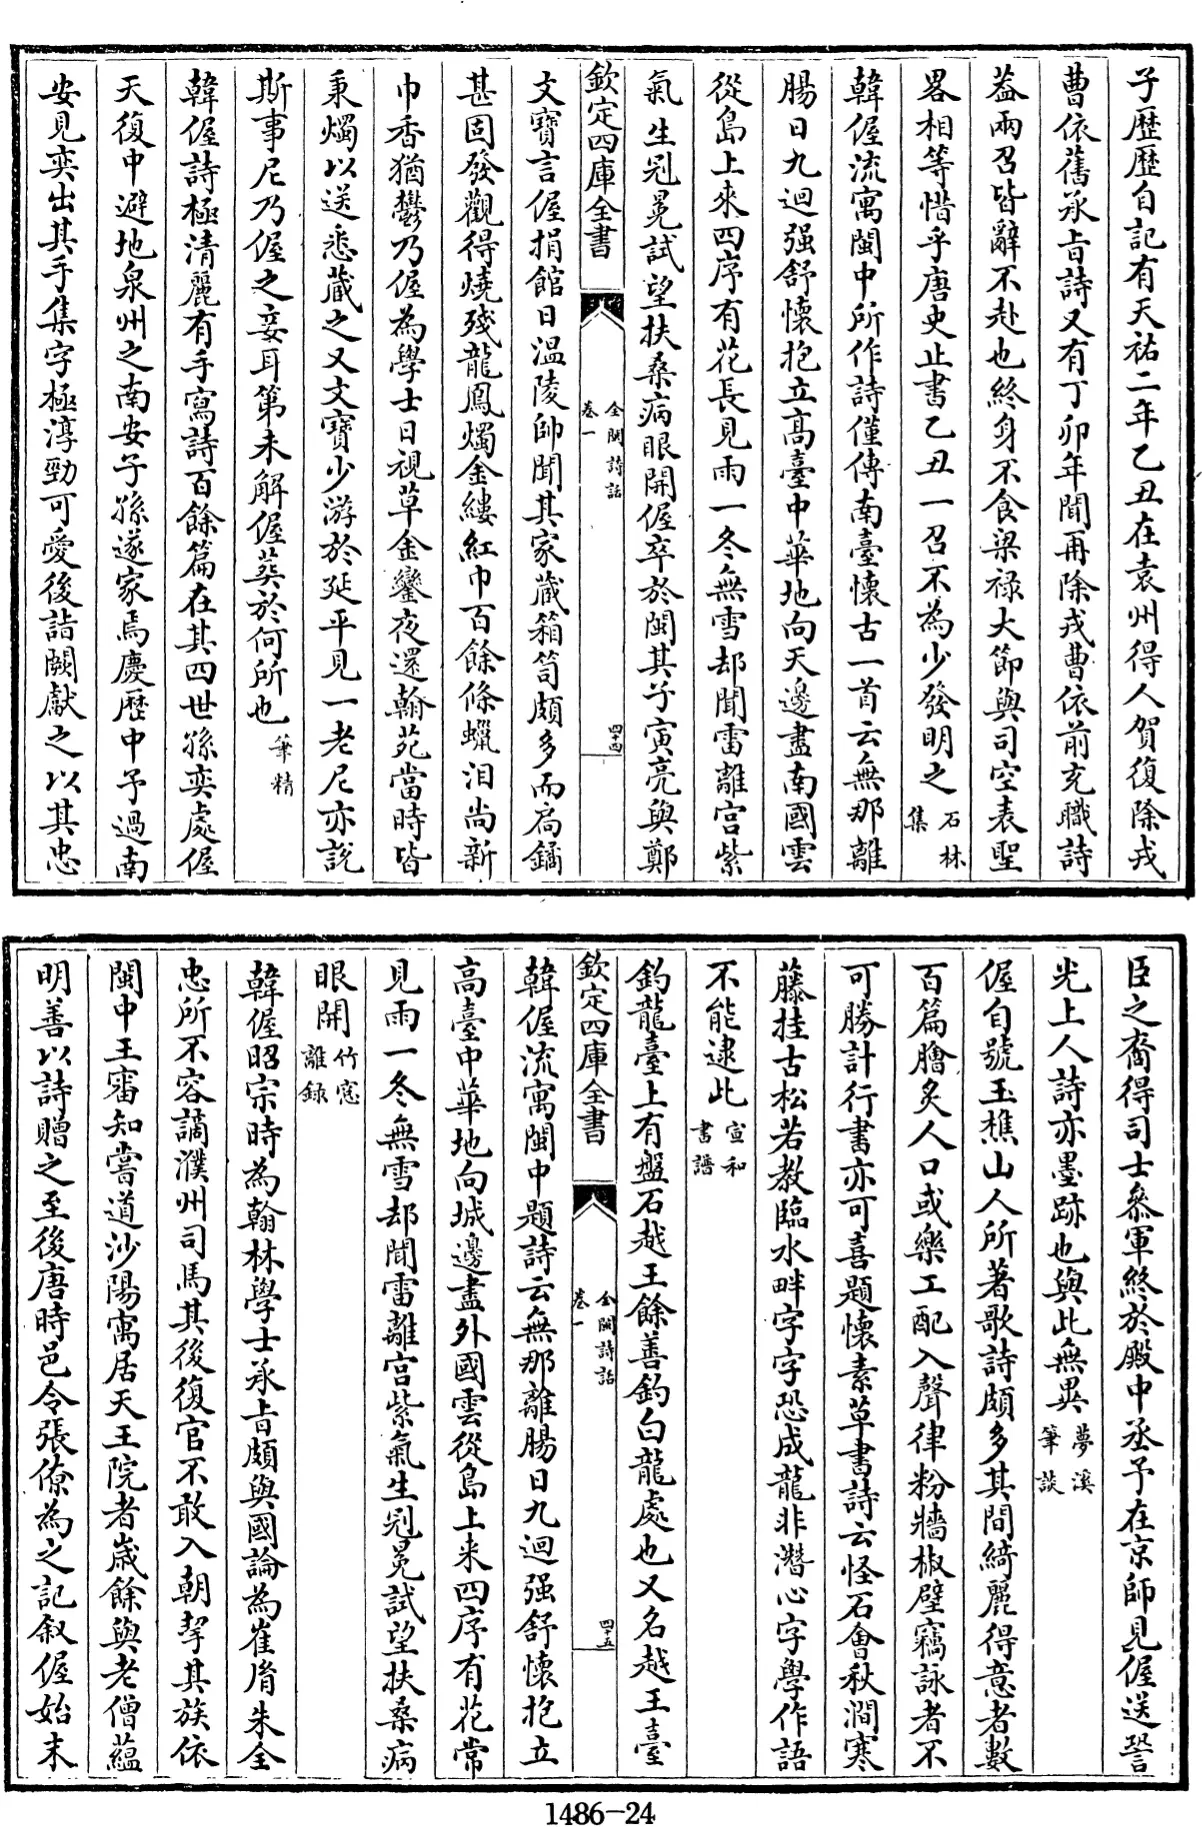 子歴歴自記有天祐二年乙丑在袁州得人賀復除戎
曹依舊承旨詩又有丁卯年聞再除戎曹依前充職詩
葢兩召皆辭不赴也終身不食梁禄大節與司空表聖
畧相等惜乎唐史止書乙丑一召不為少發明之石林集
韓偓流寓閩中所作詩僅傳南臺懷古一首云無那離
腸日九迴强舒懷抱立髙臺中華地向天邊盡南國雲
從島上來四序有花長見雨一冬無雪却聞雷離宫紫
氣生冠冕試望扶桑病眼開偓卒於閩其子寅亮與鄭
欽定四庫全書 全閩詩話 卷一 四十四
文寶言偓捐館日温陵帥聞其家蔵箱笥頗多而扃鐍
甚固發觀得燒殘龍鳳燭金縷紅巾百餘條蠟泪尚新
巾香猶鬱乃偓為學士日視草金鑾夜還翰苑當時皆
秉燭以送悉蔵之又文寶少游於延平見一老尼亦說
斯事尼乃偓之妾耳第未解偓葬於何所也筆精
韓偓詩極清麗有手寫詩百餘篇在其四世孫奕處偓
天復中避地泉州之南安子孫遂家焉慶歴中予過南
安見奕出其手集字極淳勁可愛後詣闕獻之以其忠
臣之裔得司士叅軍終於殿中丞予在京師見偓送㫼
光上人詩亦墨跡也與此無異夢溪筆談
偓自號玉樵山人所著歌詩頗多其間綺麗得意者數
百篇膾炙人口或樂工配入聲律粉牆椒壁竊詠者不
可勝計行書亦可喜題懷素草書詩云怪石㑹秋澗寒
藤挂古松若教臨水畔字字恐成龍非潛心字學作語
不能逮此宣和書譜
釣龍臺上有盤石越王餘善釣白龍處也又名越王臺
欽定四庫全書 全閩詩話 卷一 四十五
韓偓流寓閩中題詩云無那離腸日九迴强舒懷抱立
髙臺中華地向城邊盡外國雲從島上来四序有花常
見雨一冬無雪却聞雷離宫紫氣生冠冕試望扶桑病
眼開竹窻雜録
韓偓昭宗時為翰林學士承旨頗與國論為崔胤朱全
忠所不容謫濮州司馬其後復官不敢入朝挈其族依
閩中王審知嘗道沙陽寓居天王院者嵗餘與老僧藴
明善以詩贈之至後唐時邑令張僚為之記叙偓始末
1486-24